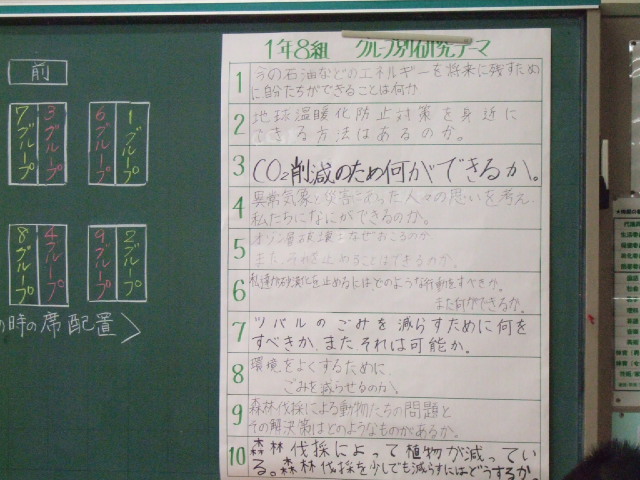 前
7グループ
3グループ
6グループ
1グループ
8グループ
4グループ
9グループ
2グループ
の時の席配置＞
1年8組 グループ別研究テーマ
1 今の石油などのエネルギーを将来に残すため
に自分たちができることは何か
2 地球温暖化防止対策を身近に
できる方法はあるのか。
3 CO2削減のため何ができるか。
4 異常気象と災害に
人々の思いを考え、
私たちになにができるのか。
5 オゾン層破壊はなぜおこるのか
また、それを止めることはできるのか。
6 私達が砂漠化を止めるにはどのような行動をすべきか。
また何ができるか。
7 ツバルのごみを減らすために何を
すべきか、また、それは可能か。
8 環境をよくするために、
ごみを減らせるのか。
9 森林伐採による動物たちの問題と
その解決策はどのようなものがあるか。
10 森林伐採によって植物が減ってい
る。森林伐採を少しでも減らすにはどうするか。